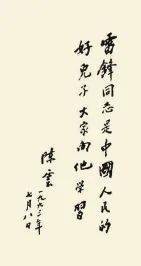 雷锋同志是中國人民的
好兒子大家向他学習
陳雲
一九九〇年
七月八日